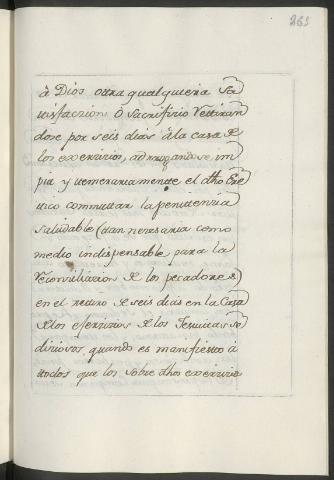 262
à Dios otra qualquiera sa
tisfaczion, ò sacrifizio Rettiran
dose por seis dias â la casa de
los exerzizios, adrrogandose im
pia y ttemerariamentte el dho Ere
ttico commuttar la penittenzia
saludable (ttan nezesaria como
medio indispensable para la
Reconziliazion de los pecadores)
en el rettiro de seis dias en la Casa
de los eserzizios de los Jesuittas se
diziosos, quando es manifiestto á
ttodos que los sobre dhos exerzizio